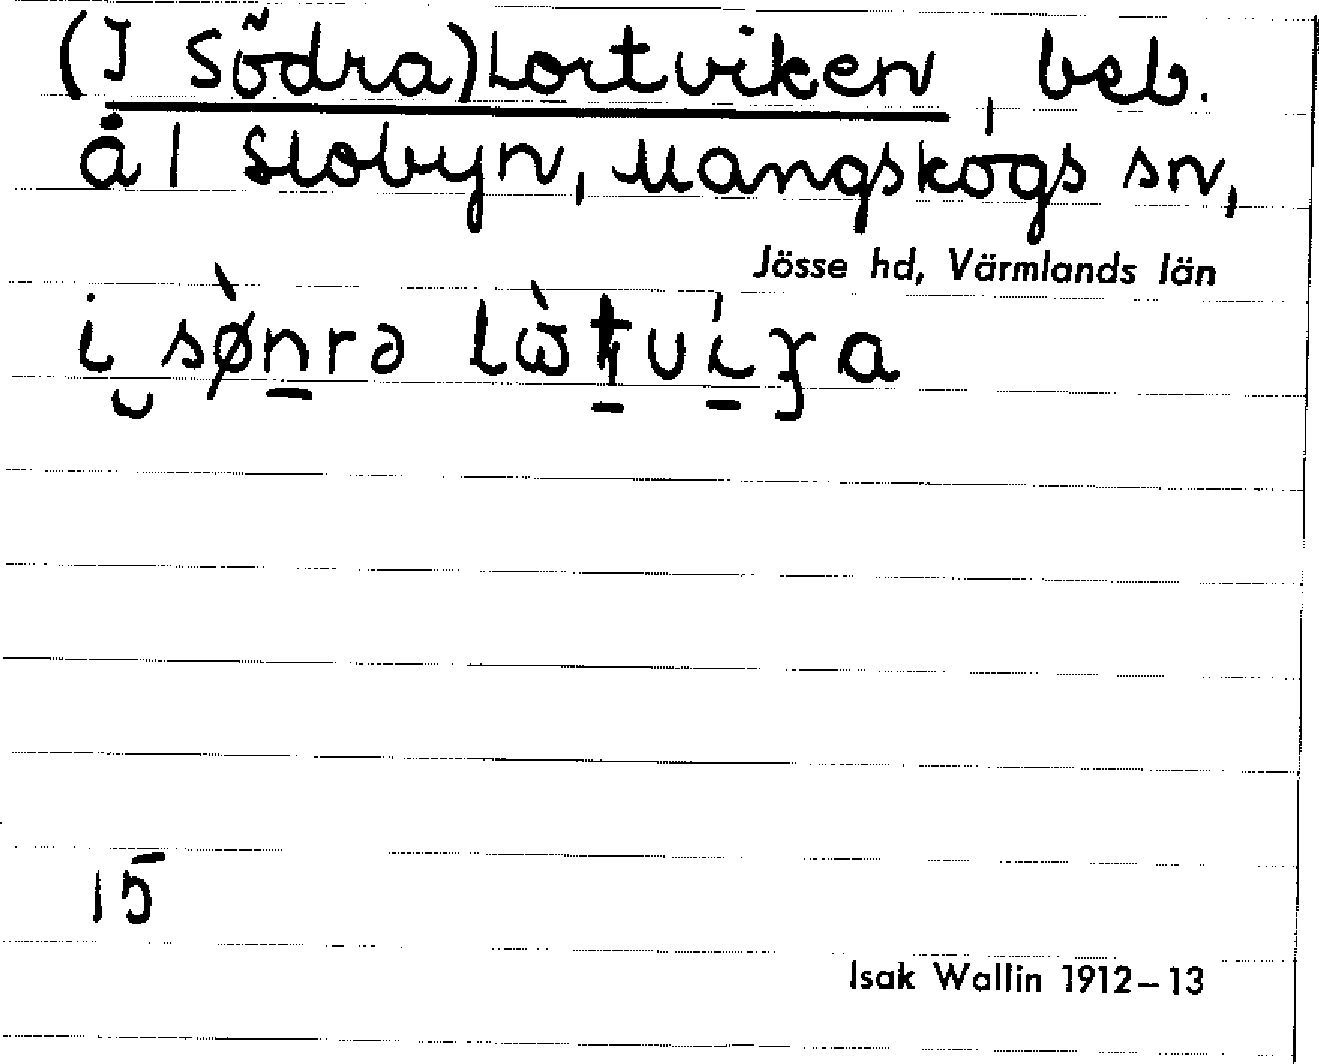 (I Södra) Lortviken, beb.
å 1 Slobyn, Mangskogs sn,
Jösse hd, Värmlands län
i sø̀nrə lὼtvíʒa
15
Isak Wallin 1912–13